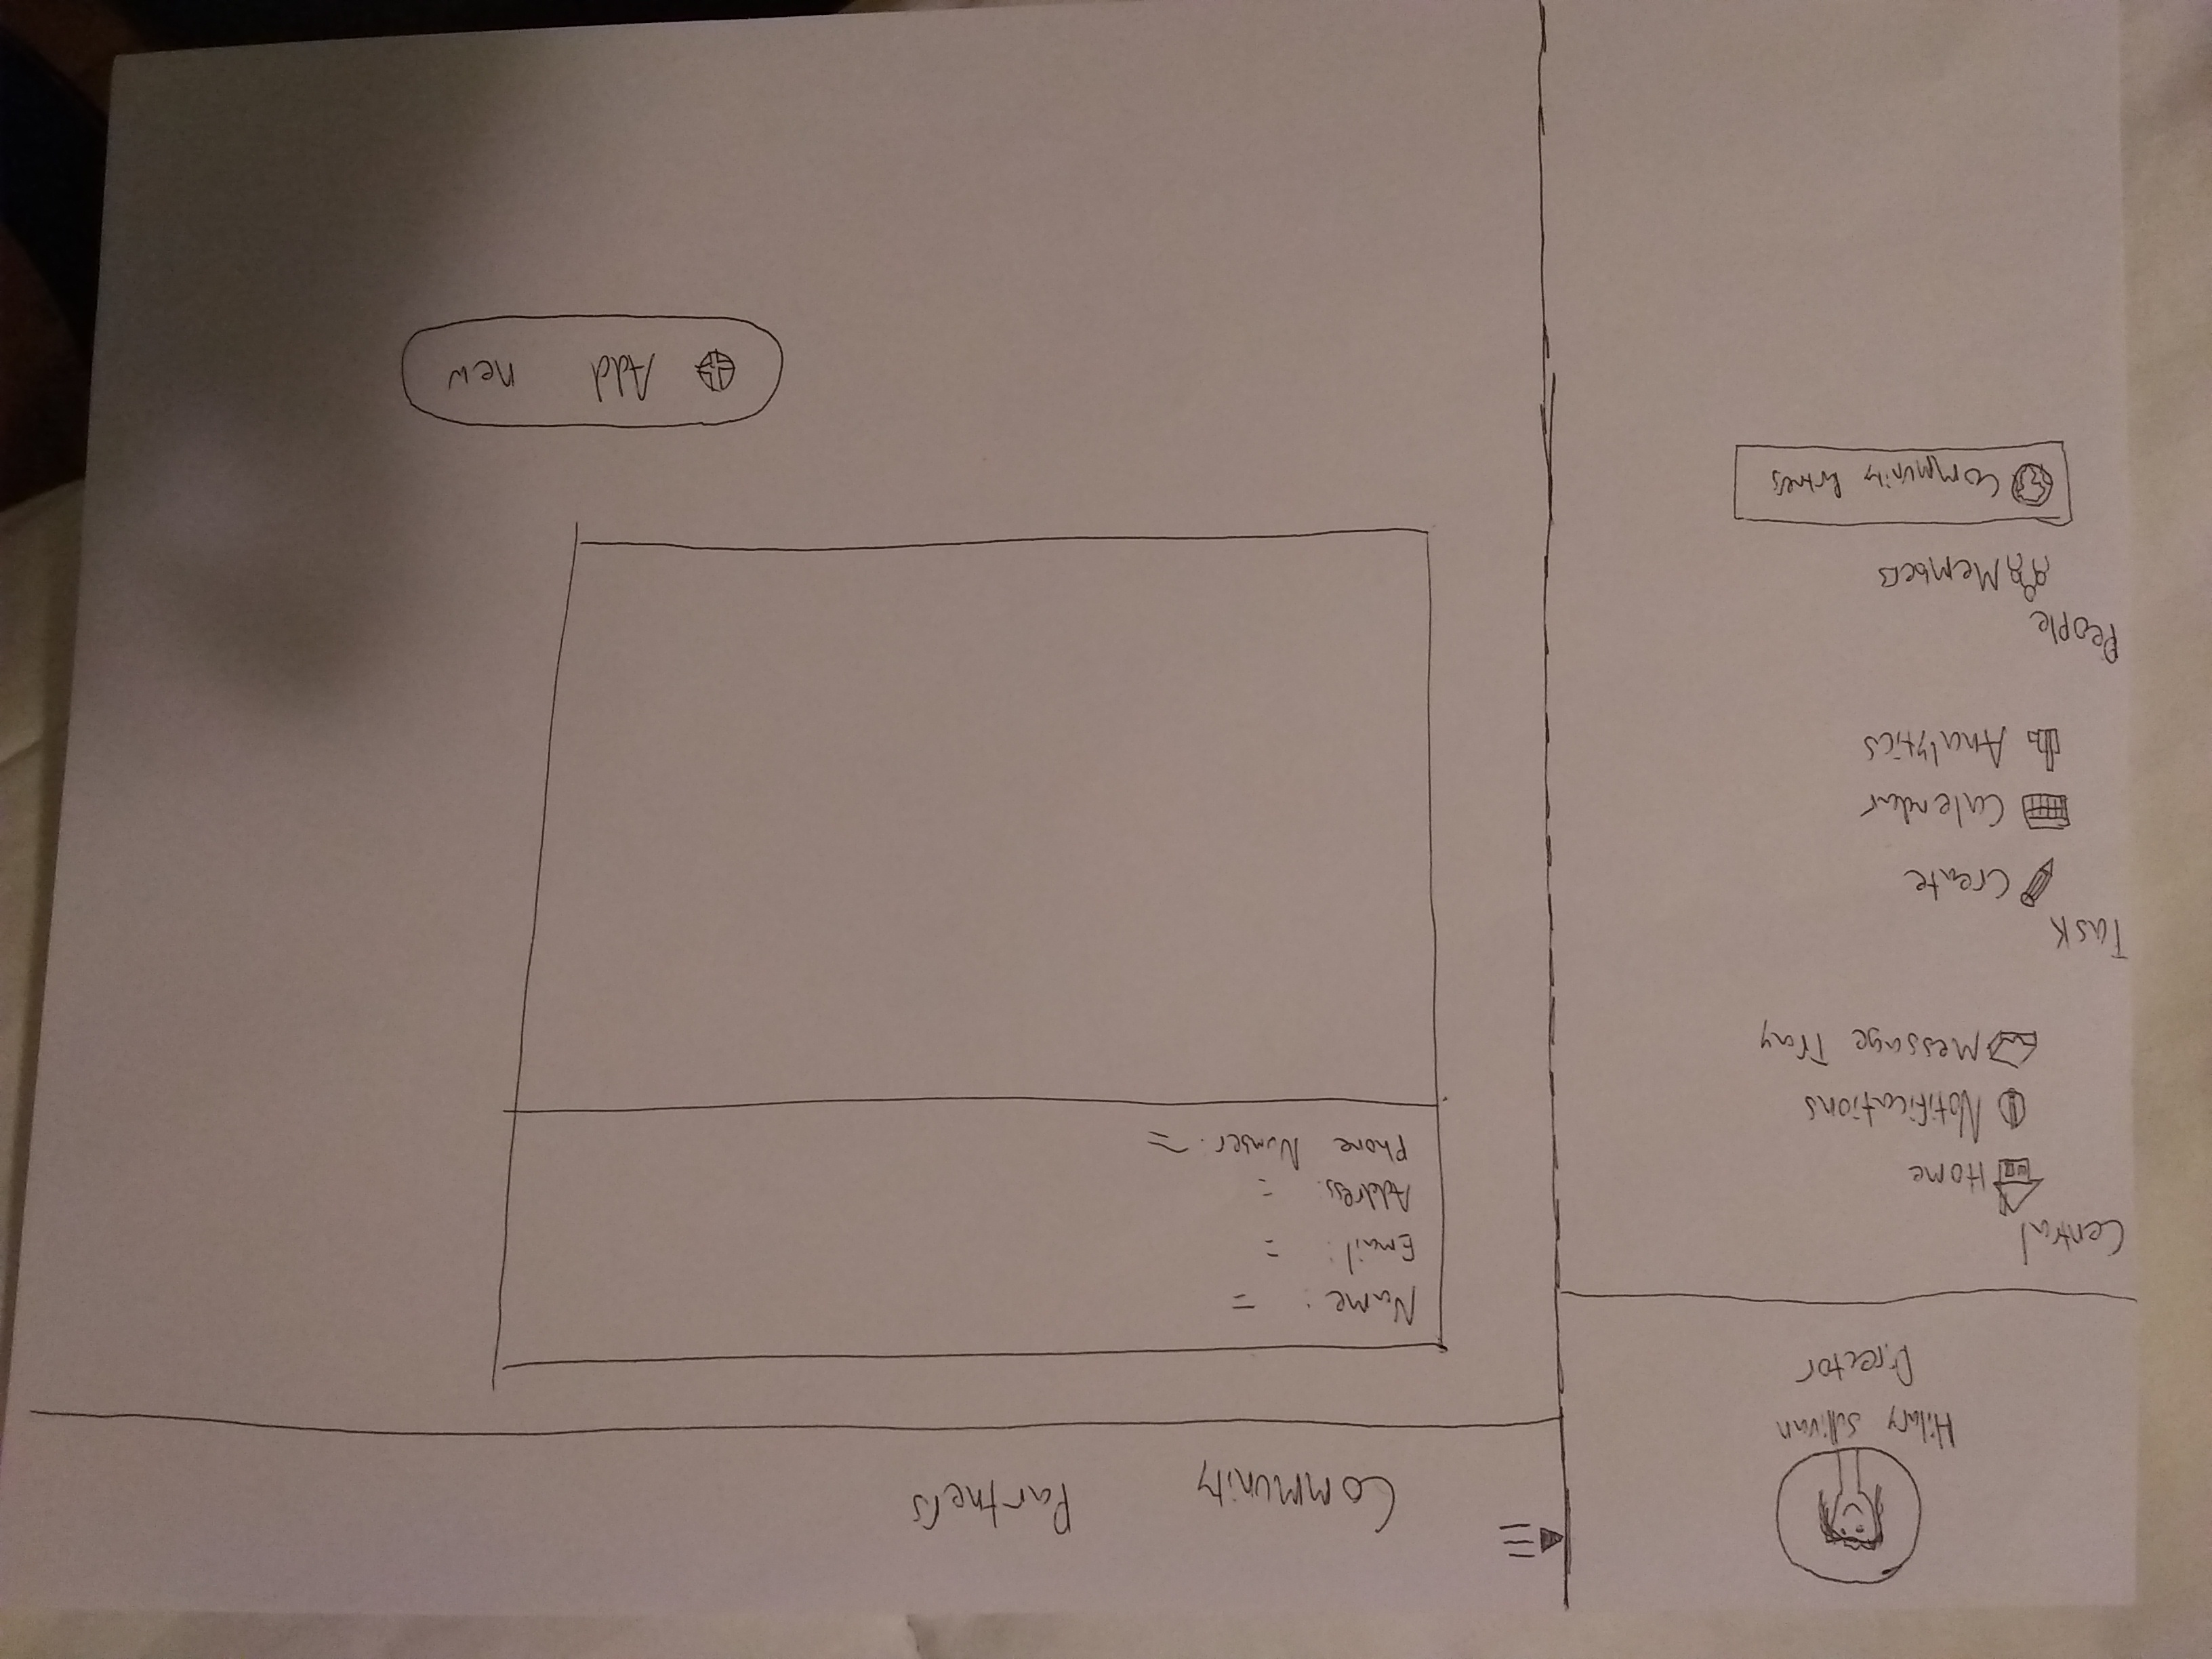 Hilary Sullivan
Director
Central
Home
Notifications
Message Tray
Task
Create
Calendar
Analytics
People
Members
Community Partners
Community Partners
Name:
Email:
Address:
Phone Number:
Add new